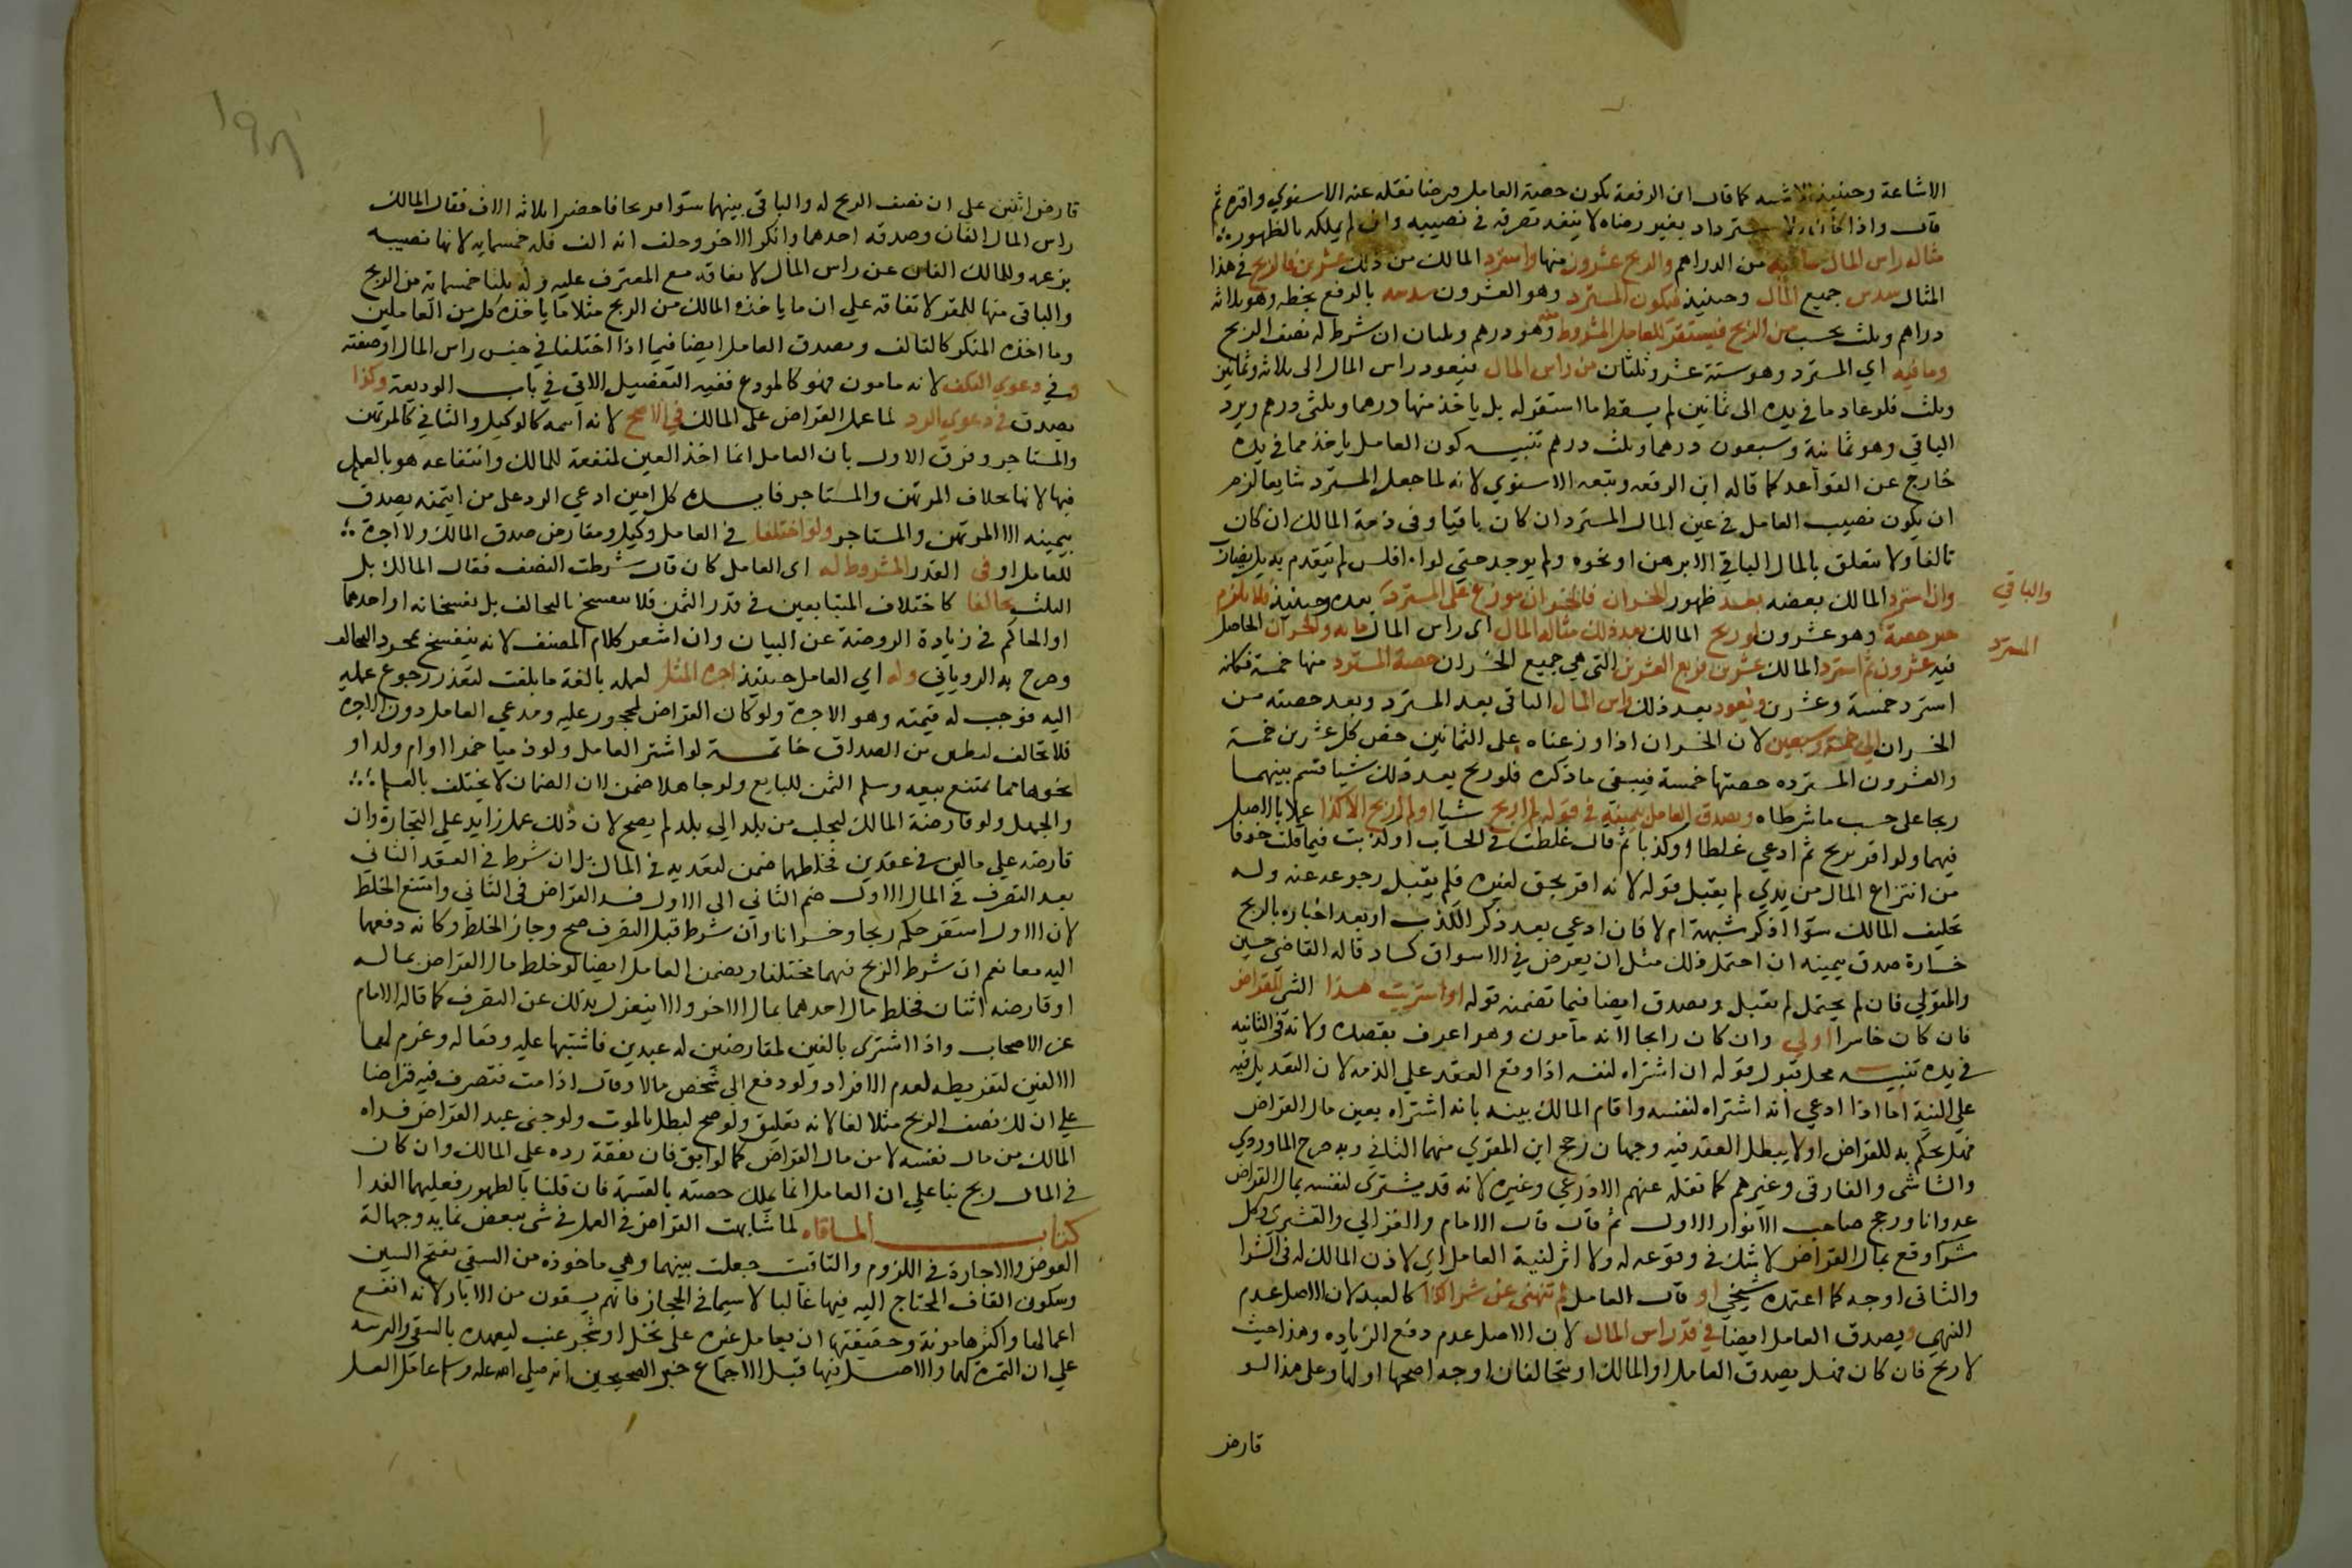 الاشاعة وحينئذ الاشبه كما قال ابن الرفعة تكون حصة العامل قرضا نقله عنه الاسنوي واقره ثم
قال واذا كان الاسترداد بغير رضاه لا ينفذ تصرفه في نصيبه وان لم يملكه بالظهور
مثاله راس المال مائة من الدراهم والربح عشرون منها واسترد المالك من ذلك عشرين فالربح في هذا
المثال سدس جميع المال وحينئذ فيكون المسترد وهو العشرون سدسه بالرفع بخطه وهو ثلاثة
دراهم وثلث يحسب من الربح فيستقر للعامل المشروط منه وهو درهم وثلثان ان شرط له نصف الربح
وما فيه اي المسترد وهو ستة عشر وثلثان من راس المال فيعود راس المال الى ثلاثة وثمانين
وثلث فلو عاد ما في يده الى ثمانين لم يسقط ما استقر له بل ياخذ منها درهما وثلثي درهم ويرد
الباقي وهو ثمانية وسبعون درهما وثلث درهم تنبيه كون العامل ياخذ مما في يده
خارج عن القواعد كما قاله ابن الرفعه وتبعه الاسنوي لانه لما جعل المسترد شايعا لزم
ان يكون نصيب العامل في عين المال المسترد ان كان باقيا وفي ذمة المالك ان كان
تالفا ولا يتعلق بالمال الباقي الا برهن او نحوه ولم يوجد حتي لو افلس لم يتقدم به بل يضارب
وان استرد المالك بعضه بعد ظهور الخسران فالخسران موزع على المسترد بعده وحينئذ فلا يلزم
والباقي
جبر حصة وهو عشرون لو ربح المالك بعد ذلك مثاله المال اي راس المال مائة والخسران الحاصل
المسترد
فيه عشرون ثم استرد المالك عشرين فربع العشرين التي هي جميع الخسران حصة المسترد منها خمسة فكانه
استرد خمسة وعشرين ويعود بعد ذلك راس المال الباقي بعد المسترد وبعد حصته من
الخسران الي خمسة وسبعين لان الخسران اذا وزعناه على الثمانين خص كل عشرين خمسة
والعشرون المسترده حصتها خمسة فيبقى ما ذكره فلو ربح بعد ذلك شيا قسم بينهما
ربحا على حسب ما شرطاه ويصدق العامل بيمينه في قوله لم اربح شيا او لم اربح الا كذا عملا بالاصل
فيهما ولو اقر بربح ثم ادعي غلطا او كذبا ثم قال غلطت في الحساب او كذبت فيما قلت خوفا
من انتزاع المال من يدي لم يقبل قوله لانه اقر بحق لغيره فلم يقبل رجوعه عنه وله
تحليف المالك سوا اذكر شبهة ام لا فان ادعي بعد ذكر الكذب او بعد اخباره بالربح
خسارة صدق بيمينه ان احتمل ذلك مثل ان يعرض في الاسواق كساد قاله القاضي حسين
والمتولي فان لم يحتمل لم يقبل ويصدق ايضا فيما تضمنه قوله او اشتريت هذا الشي للقراض
فان كان خاسرا اولي وان كان رابحا لانه مامون وهو اعرف بقصده ولانه في الثانية
في يده تنبيه محل قبول قوله ان اشتراه لنفسه اذا وقع العقد علي الذمة لان التعديل فيه
علي النية اما اذا ادعي انه اشتراه لنفسه واقام المالك بينه بانه اشتراه بعين مال القراض
فهل يحكم به للقراض اولا يبطل العقد فيه وجهان رجح ابن المقري منهما الثاني وبه صرح الماوردي
والشاشي والفارقي وغيرهم كما نقله عنهم الاذرعي وغيره لانه قد يشتري لنفسه بمال القراض
عدوانا ورجح صاحب الانوار الاول ثم قال قال الامام والغزالي والقشيري وكل
شرا وقع بمال القراض لا شك في وقوعه له ولا اثر لنية العامل اي لاذن المالك له في الشرا
والثاني اوجه كما اعتمده شيخي او قال العامل لم تنهني عن شرا كذا كالعبد لان الاصل عدم
النهي ويصدق العامل ايضا في قدر راس المال لان الاصل عدم دفع الزياده وهذا حيث
لا ربح فان كان فهل يصدق العامل او المالك او يتحالفان اوجه اصحها اولها وعلى هذا لو
قارض
١٩٨
قارض اثنين على ان نصف الربح له والباقي بينهما سوا فربحا فاحضرا ثلاثة الاف فقال المالك
راس المال الفان وصدقه احدهما وانكر الاخر وحلف انه الف فله خمسمايه لانها نصيبه
بزعمه وللمالك الفان عن راس المال لاتفاقه مع المعترف عليه وله ثلثا خمسمائة من الربح
والباقي منها للمقر لاتفاقه علي ان ما ياخذه المالك من الربح مثلا ما ياخذه كل من العاملين
وما اخذه المنكر كالتالف ويصدق العامل ايضا فيما اذا اختلفا في جنس راس المال او صفته
وفي دعوي التلف لانه مامون فهو كالمودع ففيه التفصيل الاتي في باب الوديعة وكذا
يصدق في دعوي الرد لمال القراض على المالك في الاصح لانه ائتمنه كالوكيل والثاني كالمرتهن
والمستاجر وفرق الاول بان العامل انما اخذ العين لمنفعة للمالك وانتفاعه هو بالعمل
فيها لا بها بخلاف المرتهن والمستاجر فايده كل امين ادعي الرد على من ائتمنه يصدق
بيمينه الا المرتهن والمستاجر ولو اختلفا في العامل وكيل ومقارض صدق المالك ولا اجرة
للعامل او في القدر المشروط له اي العامل كان قال شرطت النصف فقال المالك بل
الثلث تحالفا كاختلاف المتبايعين في قدر الثمن فلا ينفسخ بالتحالف بل يفسخانه او احدهما
او الحاكم في زيادة الروضة عن البيان وان اشعر كلام المصنف لانه ينفسخ بمجرد التحالف
وصرح به الروياني وله اي العامل حينئذ اجرة المثل لعمله بالغة ما بلغت لتعذر رجوع عمله
اليه فوجب له قيمته وهو الاجرة ولو كان القراض لمحجور عليه ومدعي العامل دون الاجرة
فلا تحالف لنظيره من الصداق خاتمة لو اشتر العامل ولو ذميا خمرا او ام ولد او
نحوهما مما يمتنع بيعه وسلم الثمن للبايع ولو جاهلا ضمن لان الضمان لا يختلف بالعلم
والجهل ولو قارضه المالك ليجلب من بلد الي بلد لم يصح لان ذلك عمل زايد علي التجارة وان
قارضه علي مالين في عقدين فخلطهما ضمن لتعديه في المال بل ان شرط في العقد الثاني
بعد التصرف في المال الاول ضم الثاني الي الاول فسد القراض في الثاني وامتنع الخلط
لان الاول استقر حكمه ربحا وخسرانا وان شرط قبل التصرف صح وجاز الخلط وكانه دفعهما
اليه معا نعم ان شرط الربح فيهما مختلفا ويضمن العامل ايضا لو خلط مال القراض بماله
او قارضه اثنان فخلط مال احدهما بمال الاخر ولا ينعزل بذلك عن التصرف كما قاله الامام
عن الاصحاب واذا اشترى بالفين لمقارضين له عبدين فاشتبها عليه وقعا له وغرم لهما
الالفين لتفريطه لعدم الافراد ولو دفع الي شخص مالا وقال اذا مت فتصرف فيه قراضا
علي ان لك نصف الربح مثلا لغا لانه تعليق ولو صح لبطل بالموت ولو جني عبد القراض فداه
المالك من مال نفسه لا من مال القراض كما لو ابق فان نفقة رده علي المالك وان كان
في المال ربح بنا علي ان العامل انما يملك حصته بالقسمة فان قلنا بالظهور فعليهما الفدا
كتاب المساقاه لما شابهت القراض في العمل في شي ببعض نمايه وجهالة
العوض والاجارة في اللزوم والتاقيت جعلت بينهما وهي ماخوذه من السقي بفتح السين
وسكون القاف المحتاج اليه فيها غالبا لا سيما في الحجاز فانهم يسقون من الابار لانه انفع
اعمالها واكثرها مونة وحقيقتها ان يعامل غيره على نخل او شجر عنب ليعهده بالسقي والتربيه
علي ان الثمرة لهما والاصل فيها قبل الاجماع خبر الصحيحين انه صلي الله عليه وسلم عامل اهل